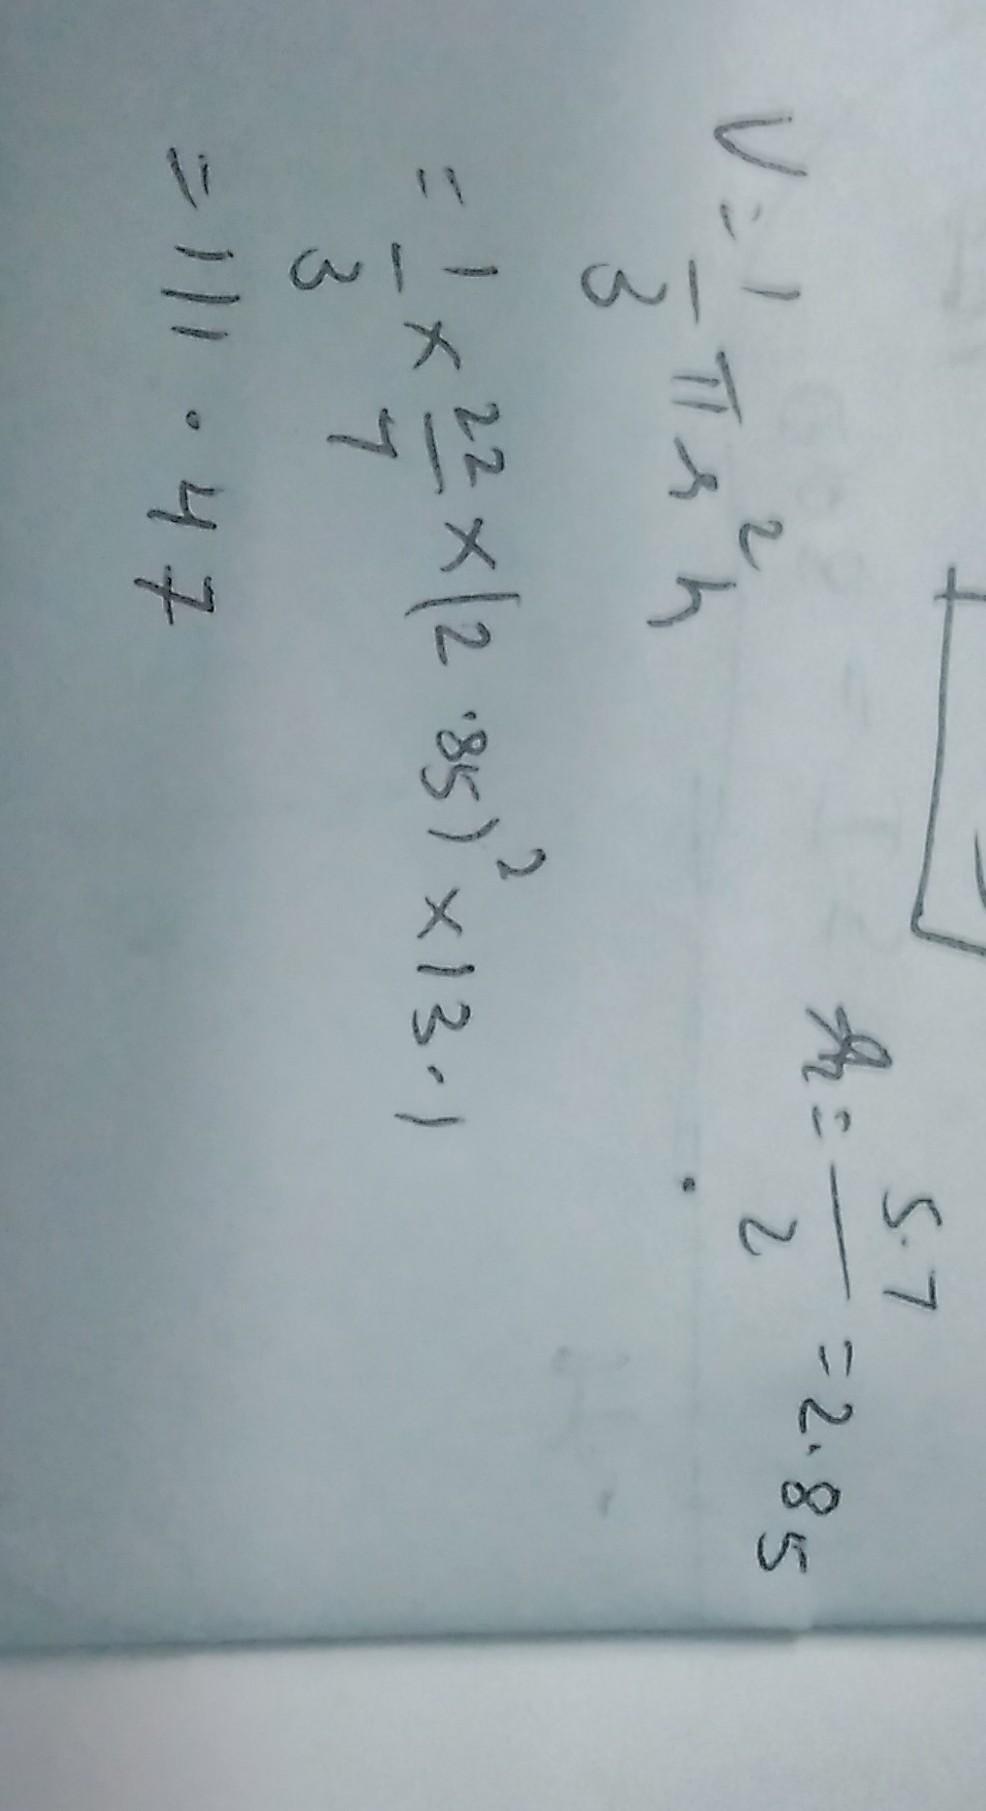 r = 5.7/2 = 2.85
V = 1/3 πr²h
= 1/3 × 22/7 × (2.85)² × 13.1
= 111.47